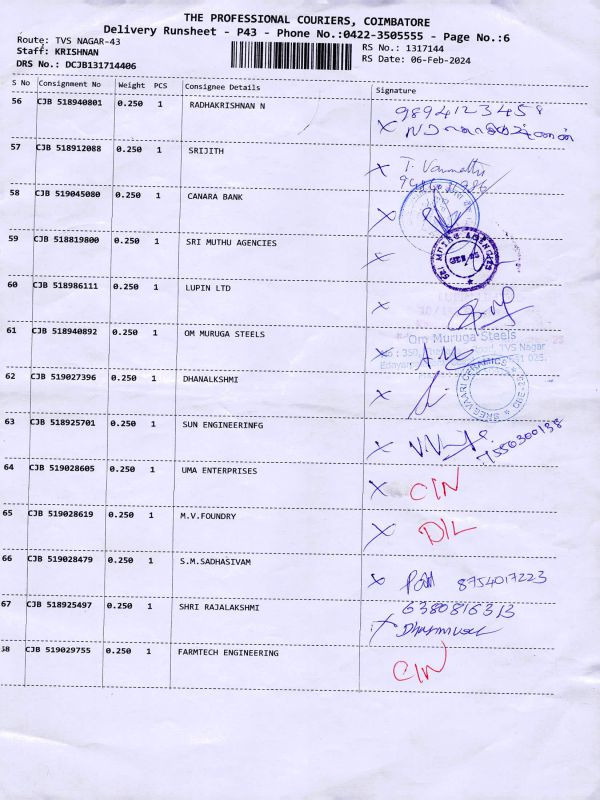 THE PROFESSIONAL COURIERS, COIMBATORE
Delivery Runsheet - P43 - Phone No.:0422-3505555 - Page No.:6
Route: TVS NAGAR-43
Staff: KRISHNAN
DRS No.: DCJB131714406
RS No.: 1317144
RS Date: 06-Feb-2024
S No Consignment No Weight PCS Consignee Details Signature
56 CJB 518940801 0.250 1 RADHAKRISHNAN N
9894123458
57 CJB 518912088 0.250 1 SRIJITH
T. Vanmathi
58 CJB 519045080 0.250 1 CANARA BANK
59 CJB 518819800 0.250 1 SRI MUTHU AGENCIES
SRI MUTHU AGENCIES
60 CJB 518986111 0.250 1 LUPIN LTD
61 CJB 518940892 0.250 1 OM MURUGA STEELS
Om Muruga Steels
TVS Nagar
641 025.
62 CJB 519027396 0.250 1 DHANALKSHMI
63 CJB 518925701 0.250 1 SUN ENGINEERINFG
7550300138
64 CJB 519028605 0.250 1 UMA ENTERPRISES
C/N
65 CJB 519028619 0.250 1 M.V.FOUNDRY
D/L
66 CJB 519028479 0.250 1 S.M.SADHASIVAM
8754017223
67 CJB 518925497 0.250 1 SHRI RAJALAKSHMI
6380816313
68 CJB 519029755 0.250 1 FARMTECH ENGINEERING
C/N